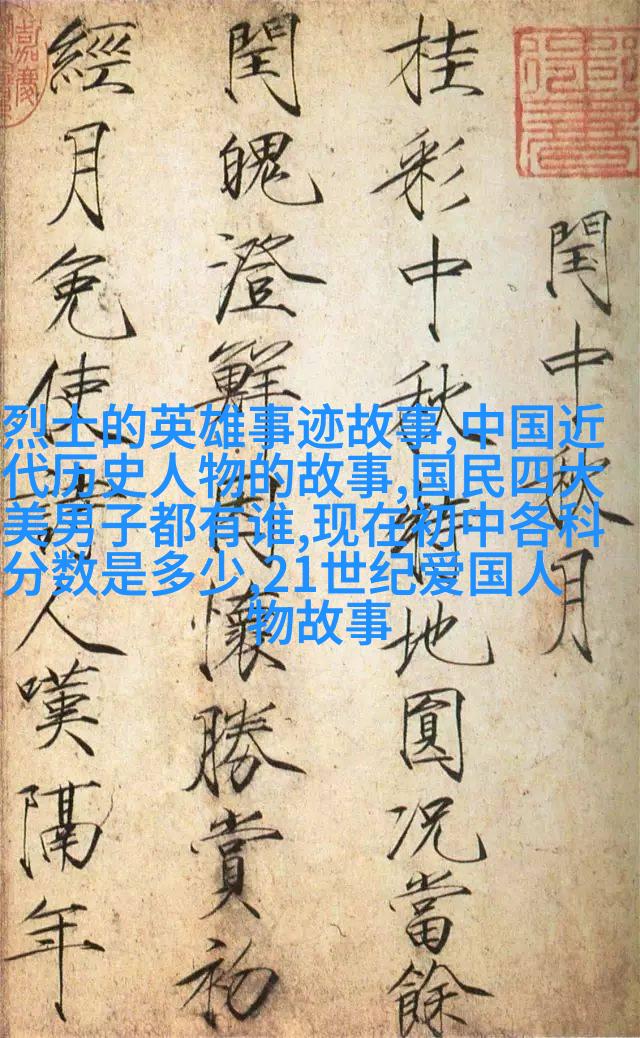 閏中秋月
桂彩中秋特地圓況當餘
閏魄澄鮮因懷勝賞初
經月免使詩人嘆隔年
烈士的英雄事迹故事,中国近
代历史人物的故事,国民四大
美男子都有谁,现在初中各科
分数是多少,21世纪爱国人
物故事